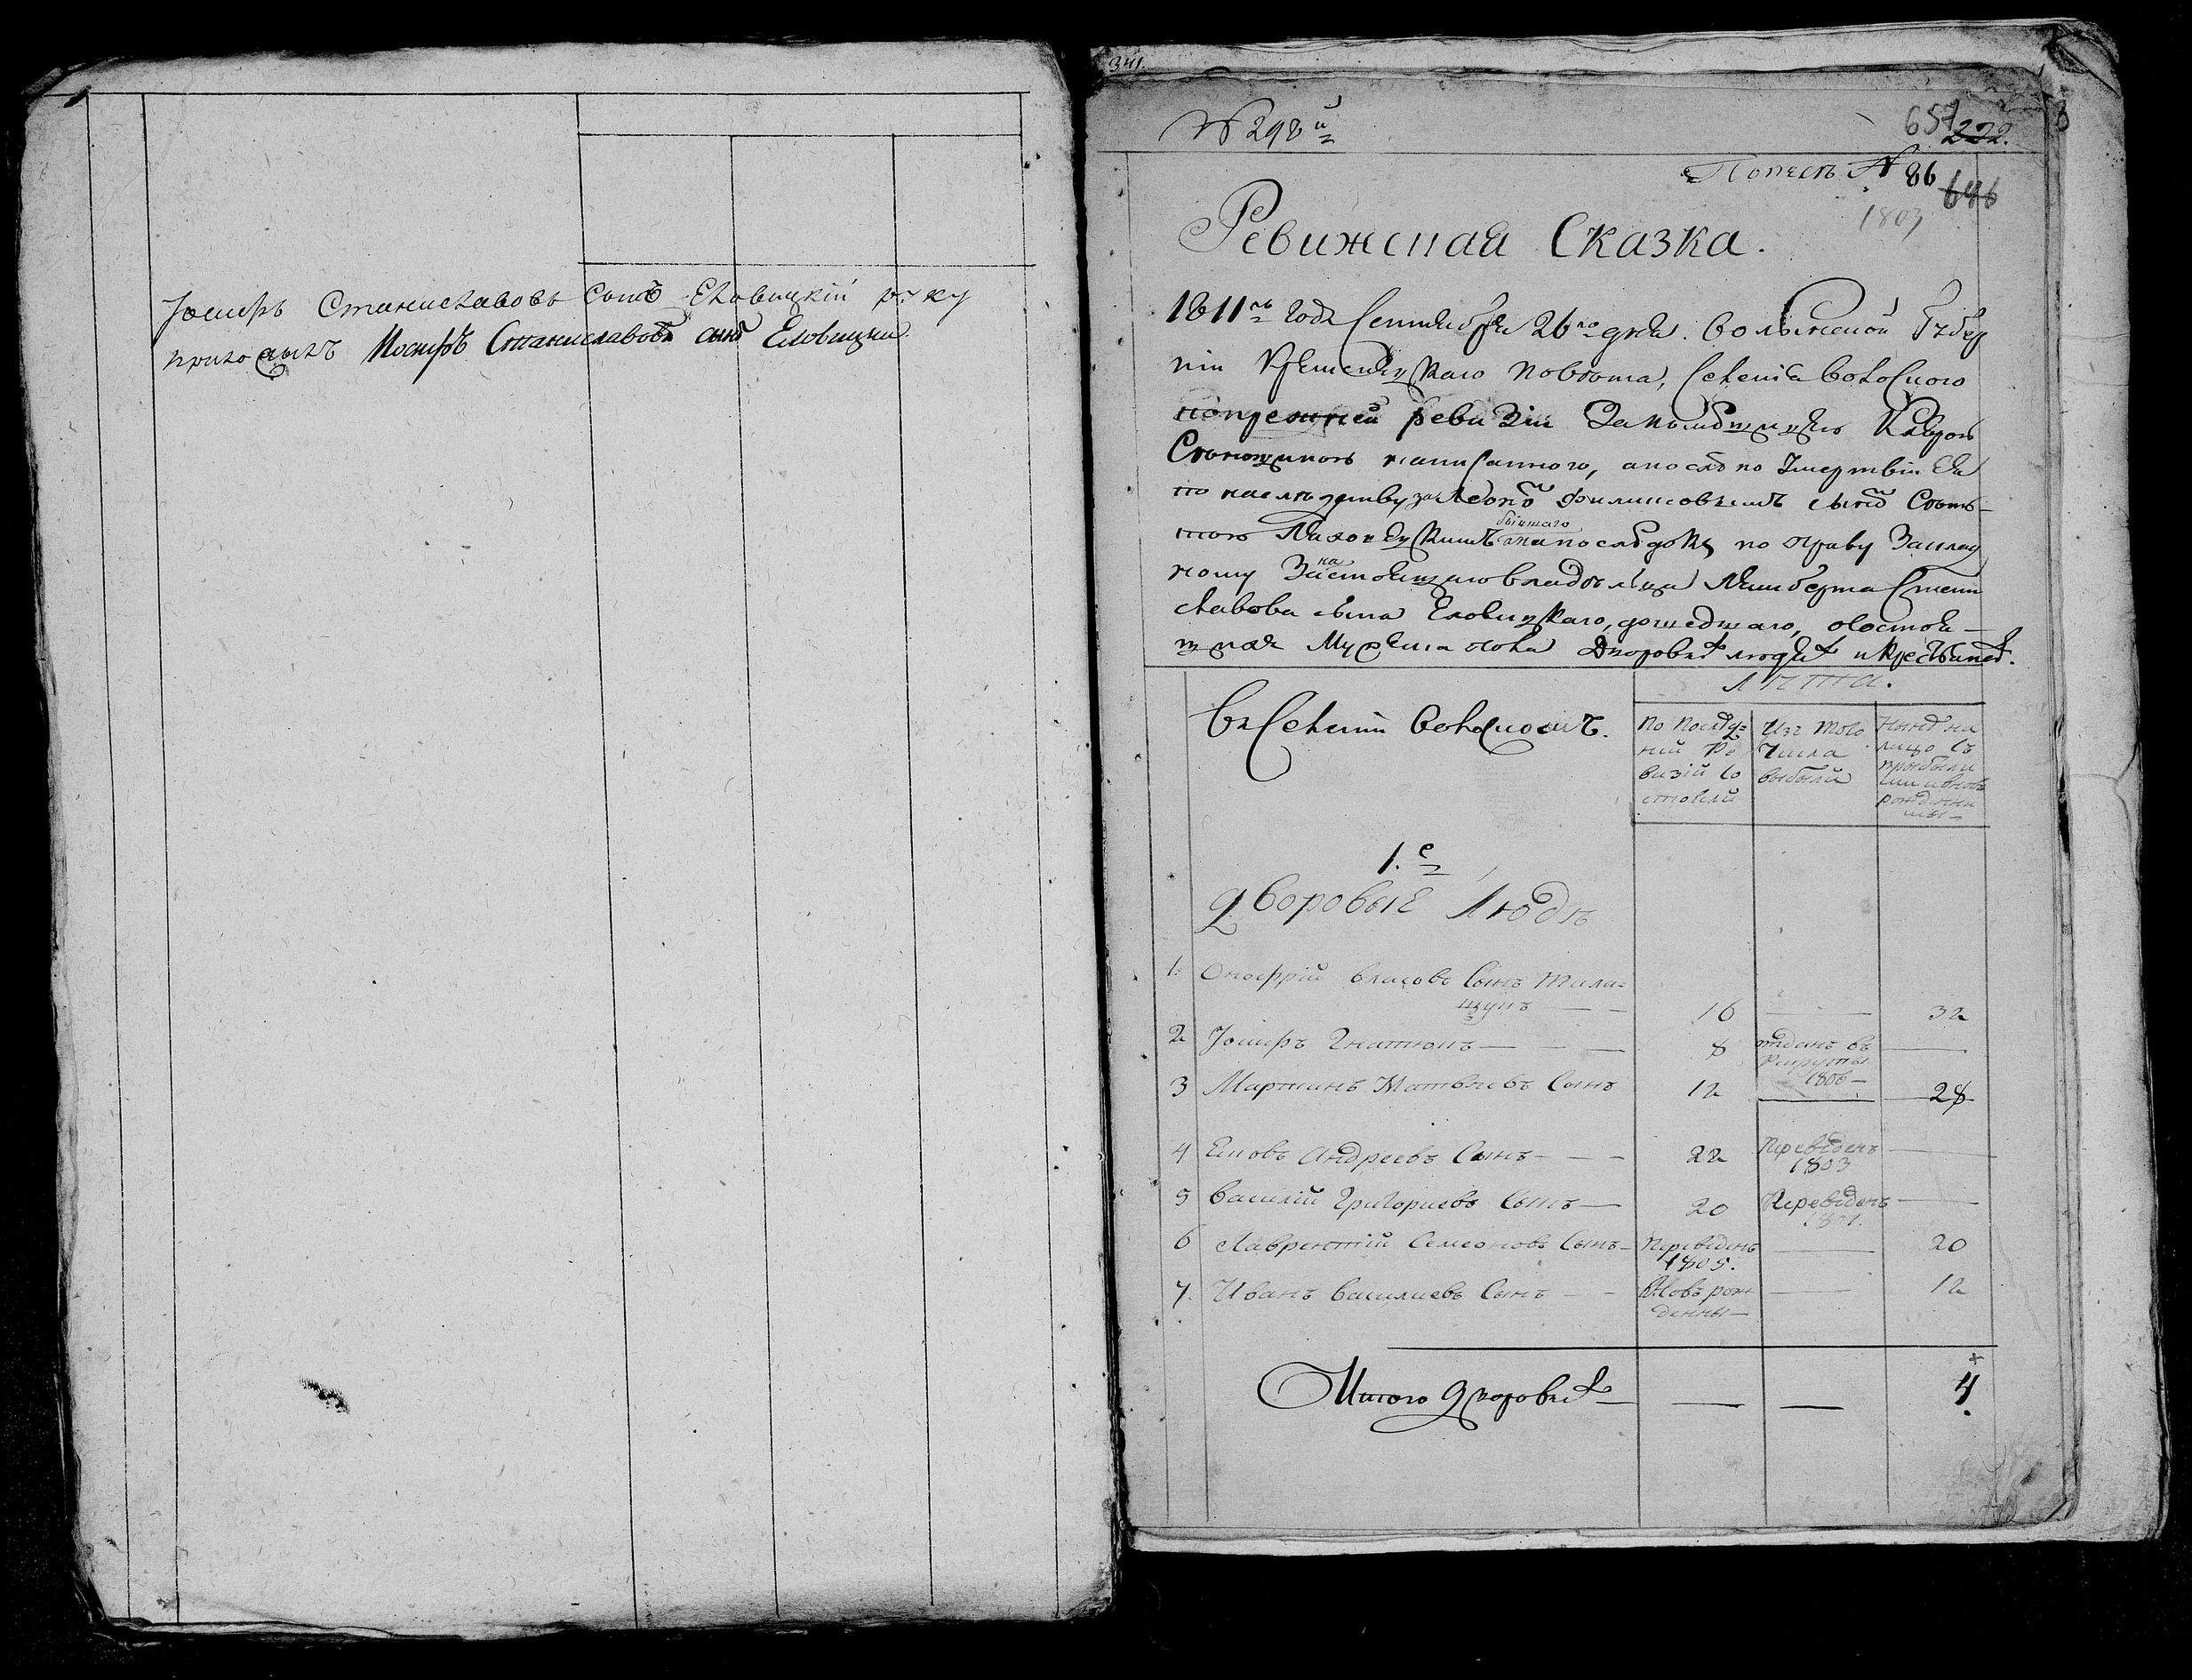 Іосифъ Станиславовъ сынъ Еловицкій руку
приложилъ Иосифъ Станиславовъ сынъ Еловицкий
341.
№ 298й
657
222.
№ 86
646
1803
Ревижская Сказка.
1811го года Сентября 26го дня. Волынской Губер
ніи Кременецкаго повѣта, Селенія Волосного
попрежней ревизіи За помѣщицею
написанного, а послѣ по Умертвіи Ея
по наслѣдству за Леономъ Филиповымъ сыномъ
бывшаго
а напослѣдокъ по праву
на
стоящаго владѣльца Ламберта Стани
славова сына Еловицкаго, дошедшаго, о состоя-
щихъ Мужеска пола Дворовыхъ людяхъ и Крестьянахъ.
Лѣта.
Въ Селеніи Волосномъ.
По послѣд=
ней Ре
визіи со
стояли
Изъ того
Числа
выбыли
Нынѣ на
лицо съ
прибылы
ми и вновь
рожденны
ми
1.е
Дворовые Людѣ
1. Онофрій Власовъ Сынъ
16 — 32
2 Іосифъ Гнатюкъ — 8 отданъ въ —
Рекруты
1806
3 Мартинъ Матвѣевъ Сынъ 12 — 28
4 Андреевъ Сынъ — 22 Переведенъ —
1803
5 Василій Григориевъ Сынъ — 20 Переведенъ —
6 Лаврентій Семеоновъ Сынъ — Переведенъ — 20
1805.
7. Иванъ Василиевъ Сынъ — Новорож — 12
денны
Итого Дворовыхъ — — — 4